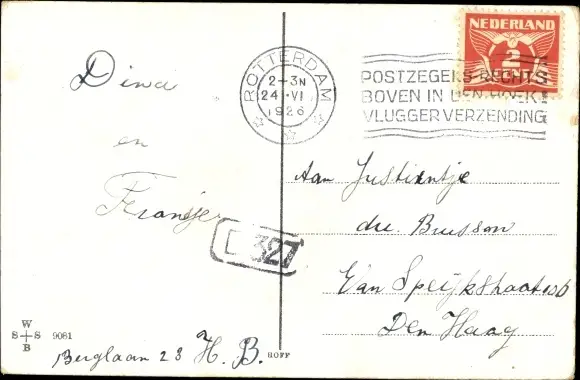 NEDERLAND
2
ROTTERDAM
2-3N
24 VI
1926
POSTZEGELS RECHTS
BOVEN IN DEN HOEK!
VLUGGER VERZENDING
Dina
en
Fransje
327
Aan Justientje
du. Buisson
Van Speijkstraat
Den Haag
W
S S 9061
B
Berglaan 23 H. B.